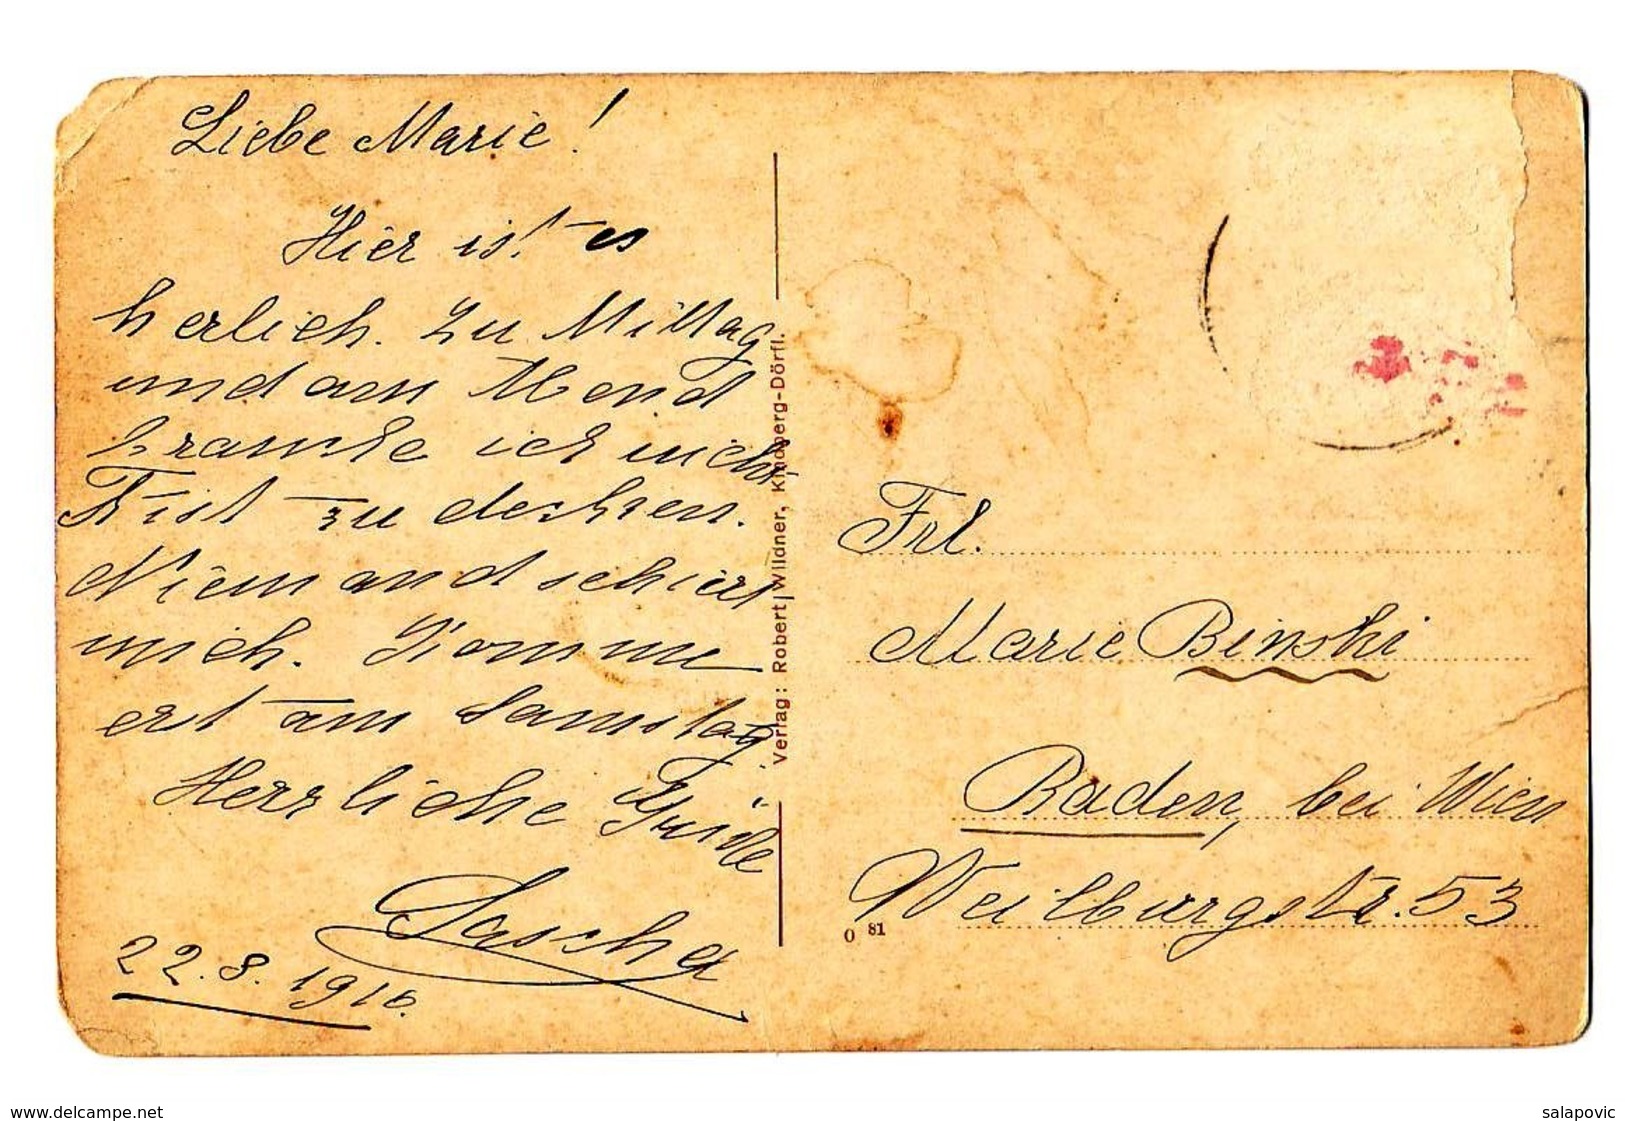 Liebe Marie!
Hier ist es
herlich. Zu Mittag
und am Abend
brauche ich nicht
erst zu
Niemand schiert
mich. Komme
erst am Samstag.
Herrliche Grüße
Sascha
22.8.1916.
Verlag: Robert Wildner, Kindberg-Dörfl.
Frl.
Marie Binski
Baden, bei Wien
Weilburgstr. 53
O 81
www.delcampe.net
salapovic